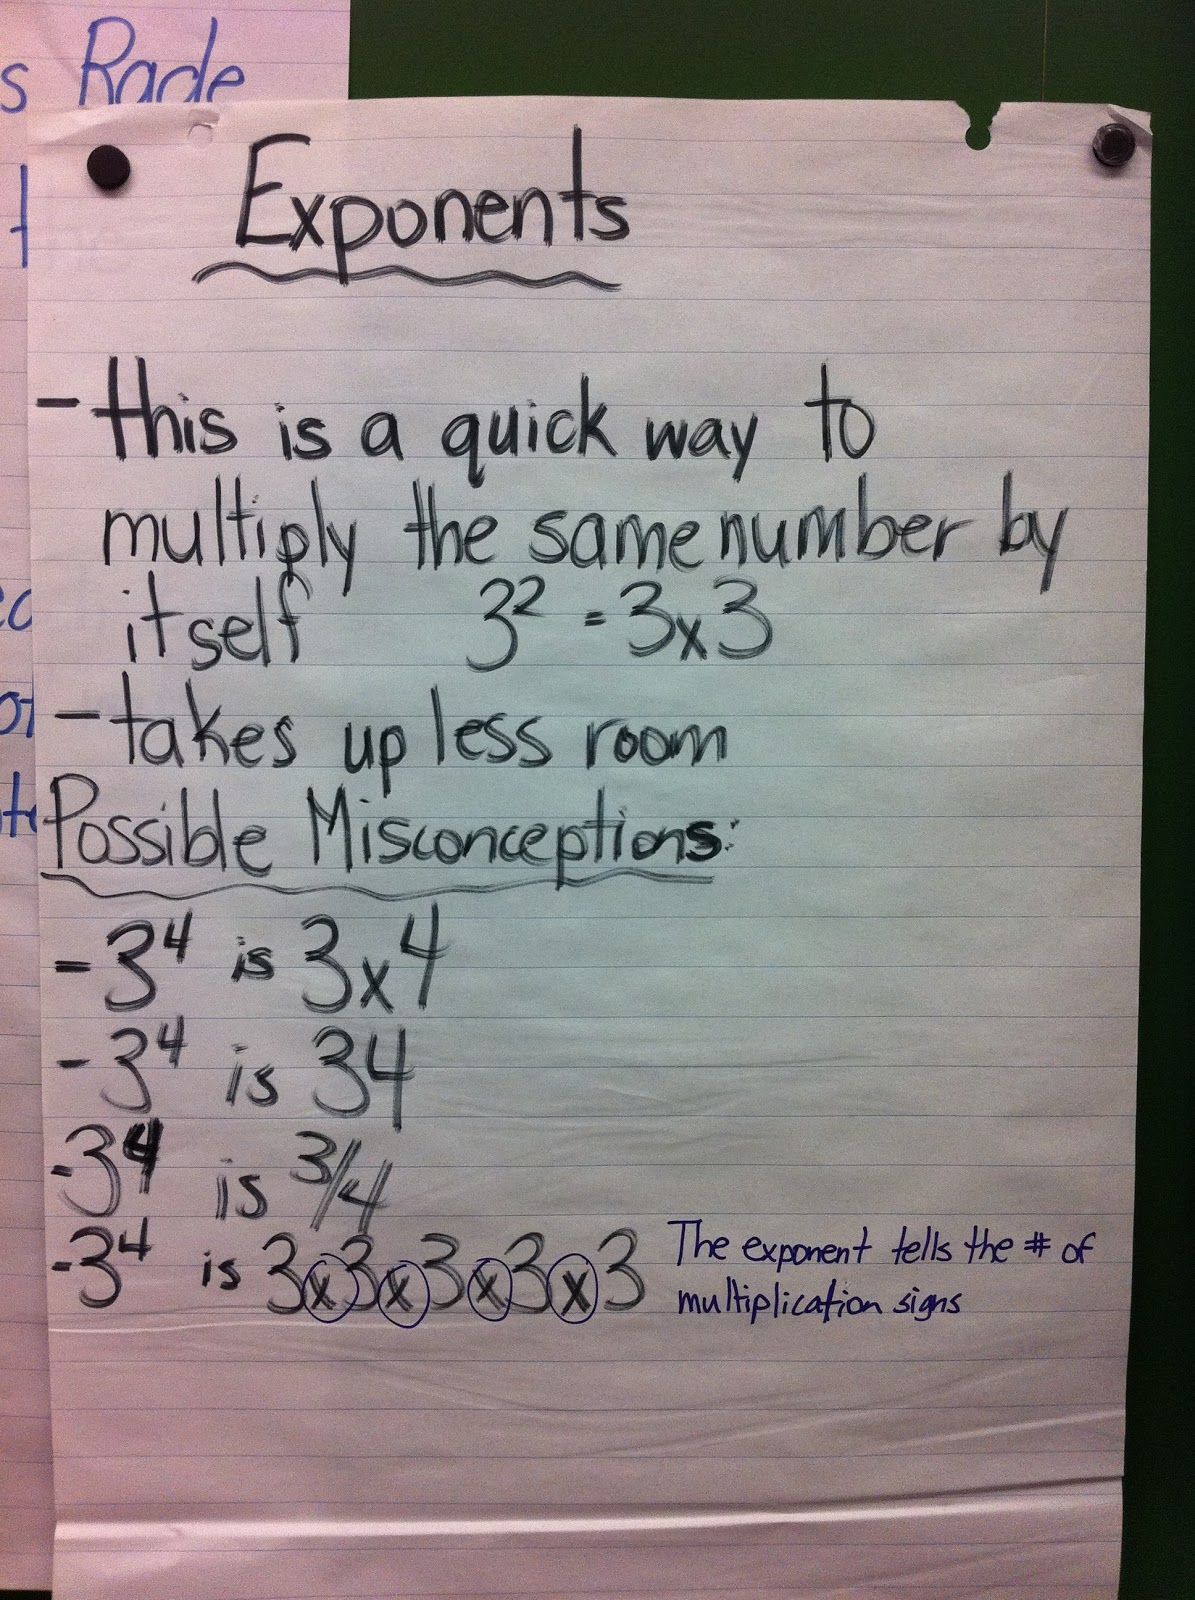 s Rade
Exponents
- this is a quick way to
multiply the same number by
itself 3² = 3x3
- takes up less room
Possible Misconceptions:
- 3⁴ is 3x4
- 3⁴ is 34
- 3⁴ is 3/4
- 3⁴ is 3x3x3x3x3 The exponent tells the # of
multiplication signs